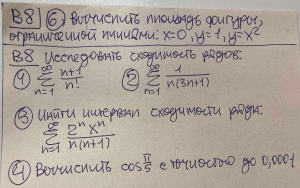 В8 ⑥ Вычислить площадь фигуры,
ограниченной линиями: x=0, y=1, y=x²
В8 Исследовать сходимость рядов:
① ∞∑n=1 n+1/n! ② ∞∑n=1 1/n(3n+1)
③ Найти интервал сходимости ряда:
∞∑n=1 2ⁿxⁿ/n(n+1)
④ Вычислить cos π/5 с точностью до 0,0001